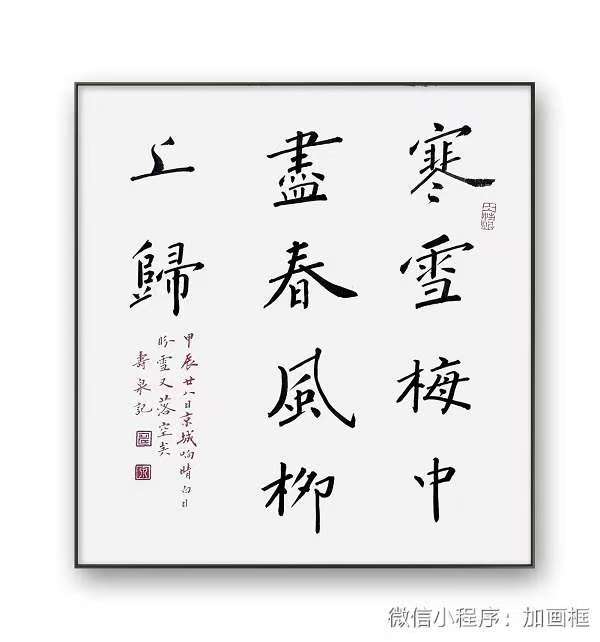 寒雪梅中
盡春風柳
上歸
甲辰廿八日京城响晴白日
盼雪又落空矣
壽泉記
微信小程序：加画框